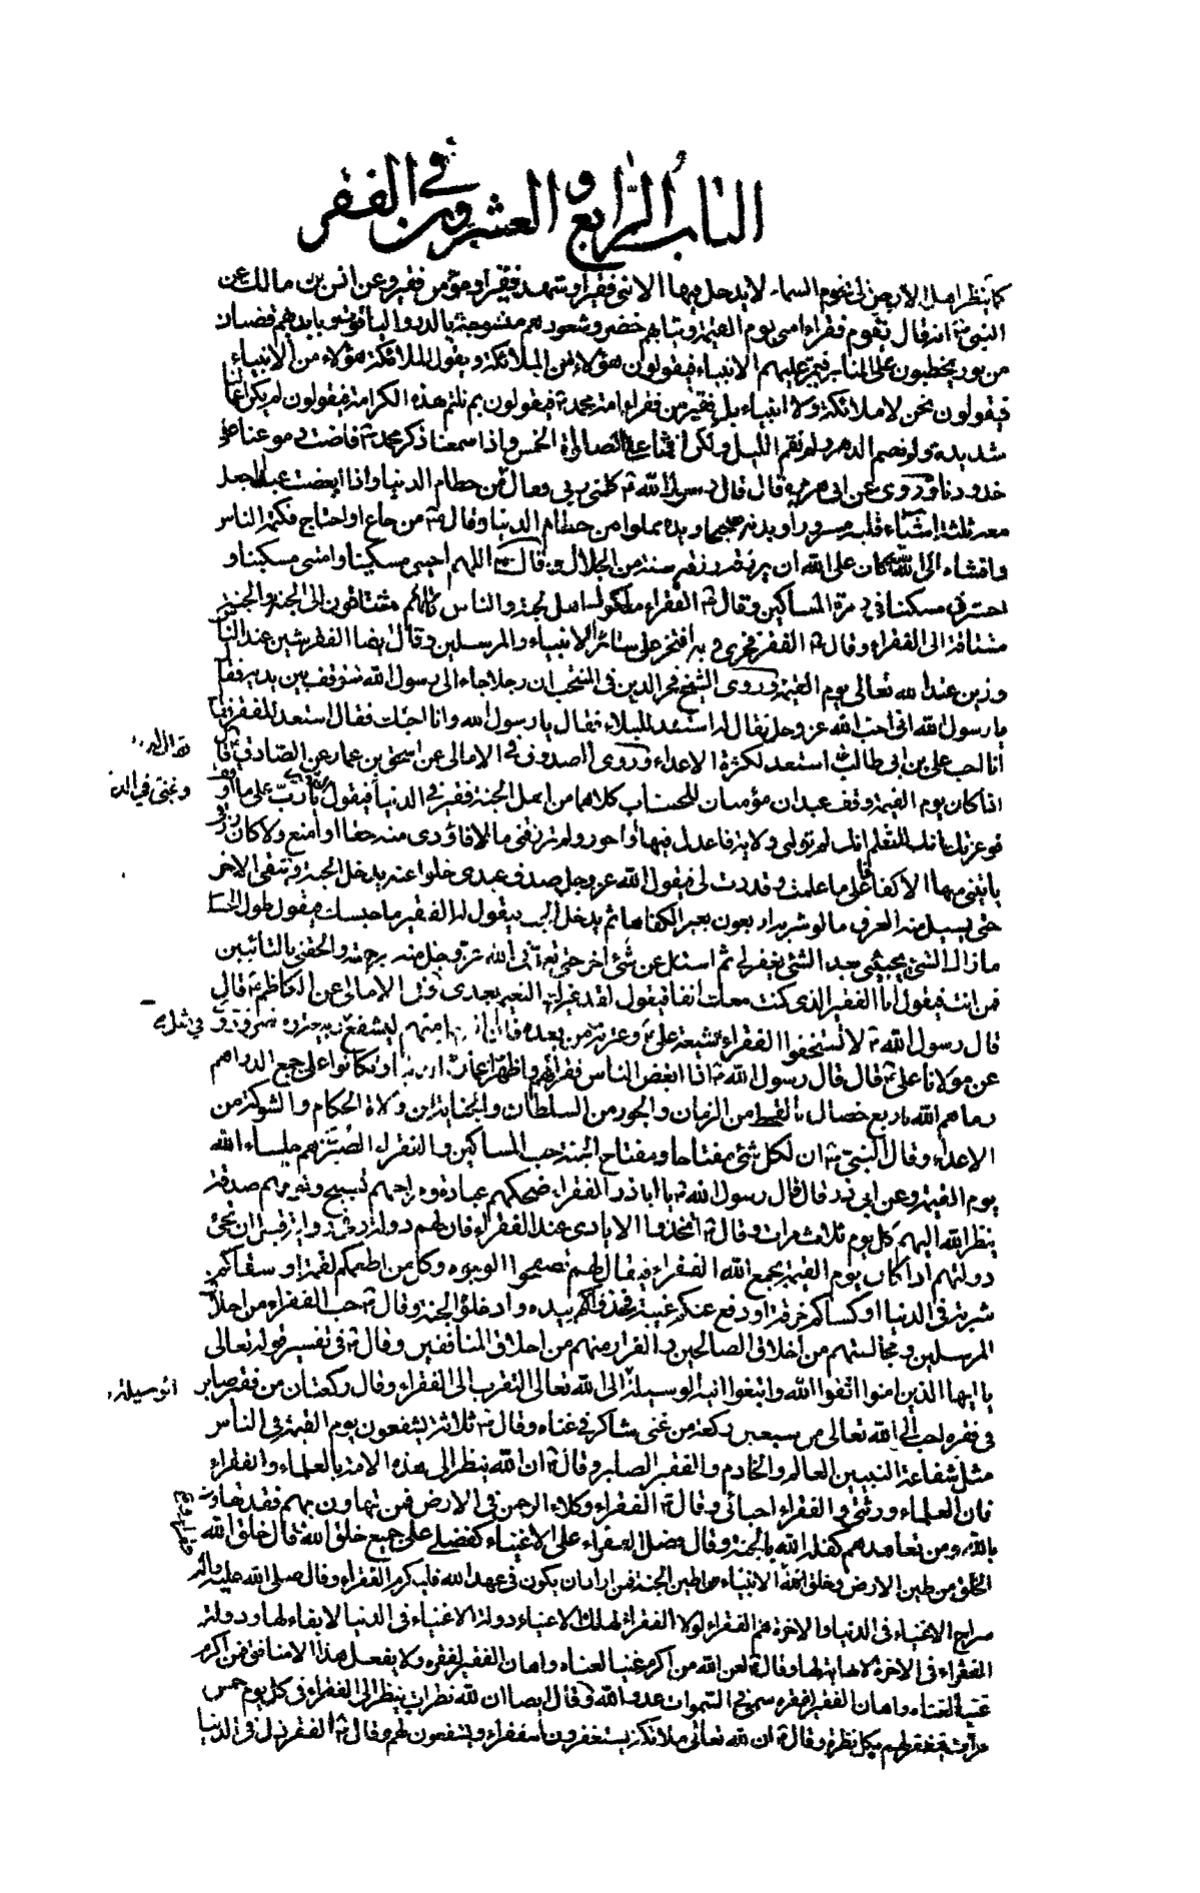 الباب الرابع والعشرون في الفقر
كما ينظر اهل الارض الى نجوم السماء لا يدخل فيها الا نبي فقير او شهيد فقير او مؤمن فقير وعن انس بن مالك عن
النبي انه قال يقوم فقراء امتي يوم القيمة وثيابهم خضر وشعورهم منسوجة بالدر والياقوت وبايديهم قضبان
من نور يخطبون على المنابر فيمر عليهم الانبياء فيقولون هؤلاء من الملائكة ويقول الملائكة هؤلاء من الانبياء
فيقولون نحن لا ملائكة ولا انبياء بل فقير من فقراء امة محمد فيقولون بم نلتم هذه الكرامة فيقولون لم يكن اعمالنا
شديدة ولم نصم الدهر ولم نقم الليل ولكن اقمنا على الصلوة الخمس واذا سمعنا ذكر محمد فاضت دموعنا على
خدودنا وروى عن ابي هريرة قال قال رسول الله كلمني ربي وقال من حطام الدنيا واذا ابغضت عبدا اجعل
معه ثلثة اشياء قلبه مسرورا وبدنه صحيحا ويده مملوا من حطام الدنيا وقال من جاع او احتاج فكتمه الناس
وافشاه الى الله كان على الله ان يرزقه رزق سنة من الحلال وقال اللهم احيني مسكينا وامتني مسكينا و
احشرني مسكينا في زمرة المساكين وقال الفقراء ملوك اهل الجنة والناس كلهم مشتاقون الى الجنة والجنة
مشتاقة الى الفقراء وقال الفقر فخري وبه افتخر على سائر الانبياء والمرسلين وقال ايضا الفقر شين عند الناس
وزين عند الله تعالى يوم القيمة وروى الشيخ فخر الدين في المنتخب ان رجلا جاء الى رسول الله فوقف بين يديه فقال
يا رسول الله اني احب الله عز وجل فقال له استعد للبلاء فقال يا رسول الله وانا احبك فقال استعد للفقر فقال
انا احب علي بن ابي طالب استعد لكثرة الاعداء وروى الصدوق في الامالي عن اسحق بن عمار عن الصادق قال
اذا كان يوم القيمة وقف عبدان مؤمنان للحساب كلاهما من اهل الجنة فقير في الدنيا فيقول يا رب على ما اوقف
فوعزتك انك لتعلم انك لم تولني ولاية فاعدل فيها او اجور ولم ترزقني مالا فاؤدى منه حقا او امنع ولا كان رزقي
يأتيني منها الا كفافا على ما علمت وقدرت لي فيقول الله عز وجل صدق عبدي خلوا عنه يدخل الجنة ويبقى الاخر
حتى يسيل منه العرق ما لو شربه اربعون بعير الكفاها ثم يدخل الجنة فيقول له الفقير ما حبسك فيقول طول الحساب
ما زال الشيء يجيئني بعد الشيء يغفر لي ثم اسئل عن شيء اخر حتى تغمدني الله عز وجل منه برحمته والحقني بالتائبين
فمن انت فيقول انا الفقير الذي كنت معك انفا فيقول لقد غيرك النعيم بعدي وفي الامالي عن الكاظم قال
قال رسول الله لا تستخفوا الفقراء شيعة علي وعترته من بعده فان
عن مولانا علي قال قال رسول الله اذا ابغض الناس فقرائهم واظهروا عمارة وتكالبوا على جمع الدراهم
رماهم الله باربع خصال بالقحط من الزمان والجور من السلطان والخيانة من ولاة الحكام والشوكة من
الاعداء وقال النبي ان لكل شيء مفتاحا ومفتاح الجنة حب المساكين والفقراء الصبر هم جلساء الله
يوم القيمة وعن ابي ذر قال قال رسول الله يا اباذر الفقراء ضحكهم عبادة ومزاحهم تسبيح ونومهم صدقة
ينظر الله اليهم كل يوم ثلاث مرات وقال اتخذوا الايادي عند الفقراء فان لهم دولة قبل ان تجئ
دولتهم اذا كان يوم القيمة يجمع الله الفقراء فيقال لهم تصفحوا الوجوه وكل من اطعمكم لقمة او سقاكم
شربة في الدنيا او كساكم خرقة او دفع عنكم غيبة فخذوا بيده وادخلوا الجنة وقال حب الفقراء من اخلاق
المرسلين ومجالستهم من اخلاق الصالحين والفرار منهم من اخلاق المنافقين وقال في تفسير قوله تعالى
يا ايها الذين امنوا اتقوا الله وابتغوا اليه الوسيلة الى الله تعالى التقرب الى الفقراء وقال ركعتان من فقير صابر
في فقره احب الى الله تعالى من سبعين ركعة من غني شاكر في غناه وقال ثلاثة يشفعون يوم القيمة في الناس
مثل شفاعة النبيين العالم والخادم والفقير الصابر وقال ان الله ينظر الى هذه الامة بالعلماء والفقراء
فان العلماء ورثتي والفقراء احبائي وقال الفقراء وكلاء الرحمن في الارض فمن تهاون بهم فقد تهاون
بالله ومن تعاهدهم كفله الله بالجنة وقال فضل الفقراء على الاغنياء كفضلي على جميع خلق الله قال خلق الله
الخلق من طين الارض وخلق الانبياء من طين الجنة فمن اراد ان يكون في عهد الله فليكرم الفقراء وقال صلى الله عليه واله
سراج الاغنياء في الدنيا والاخرة هم الفقراء لولا الفقراء لهلك الاغنياء دولة الاغنياء في الدنيا لا بقاء لها ودولة
الفقراء في الاخرة لا نهاية لها وقال لعن الله من اكرم غنيا لغناه واهان الفقير لفقره ولا يفعل هذا الا منافق فمن اكرم
غنيا لغناه واهان الفقير لفقره سمي في السموات عدو الله وقال ايضا ان لله نظرات ينظر الى الفقراء في كل يوم خمس
مرات فيغفر لهم بكل نظرة وقال ان لله تعالى ملائكة يستغفرون للفقراء ويشفعون لهم وقال الفقر ذل في الدنيا